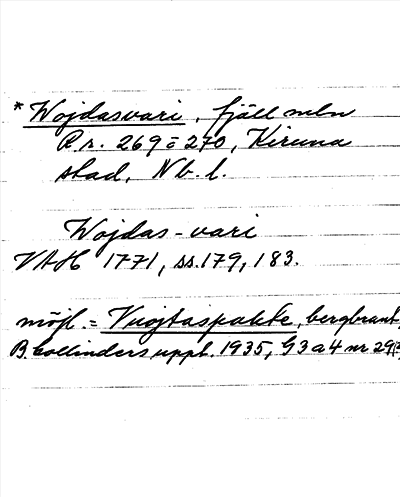 * Wojdasvari, fjäll mln
R.r. 269 = 270, Kiruna
stad, Nb. l.
Wojdas-vari
VAH 1771, ss. 179, 183.
möjl. = Vuojtaspakte, bergbrant,
B. Collinders uppt. 1935, G3a4 nr 29